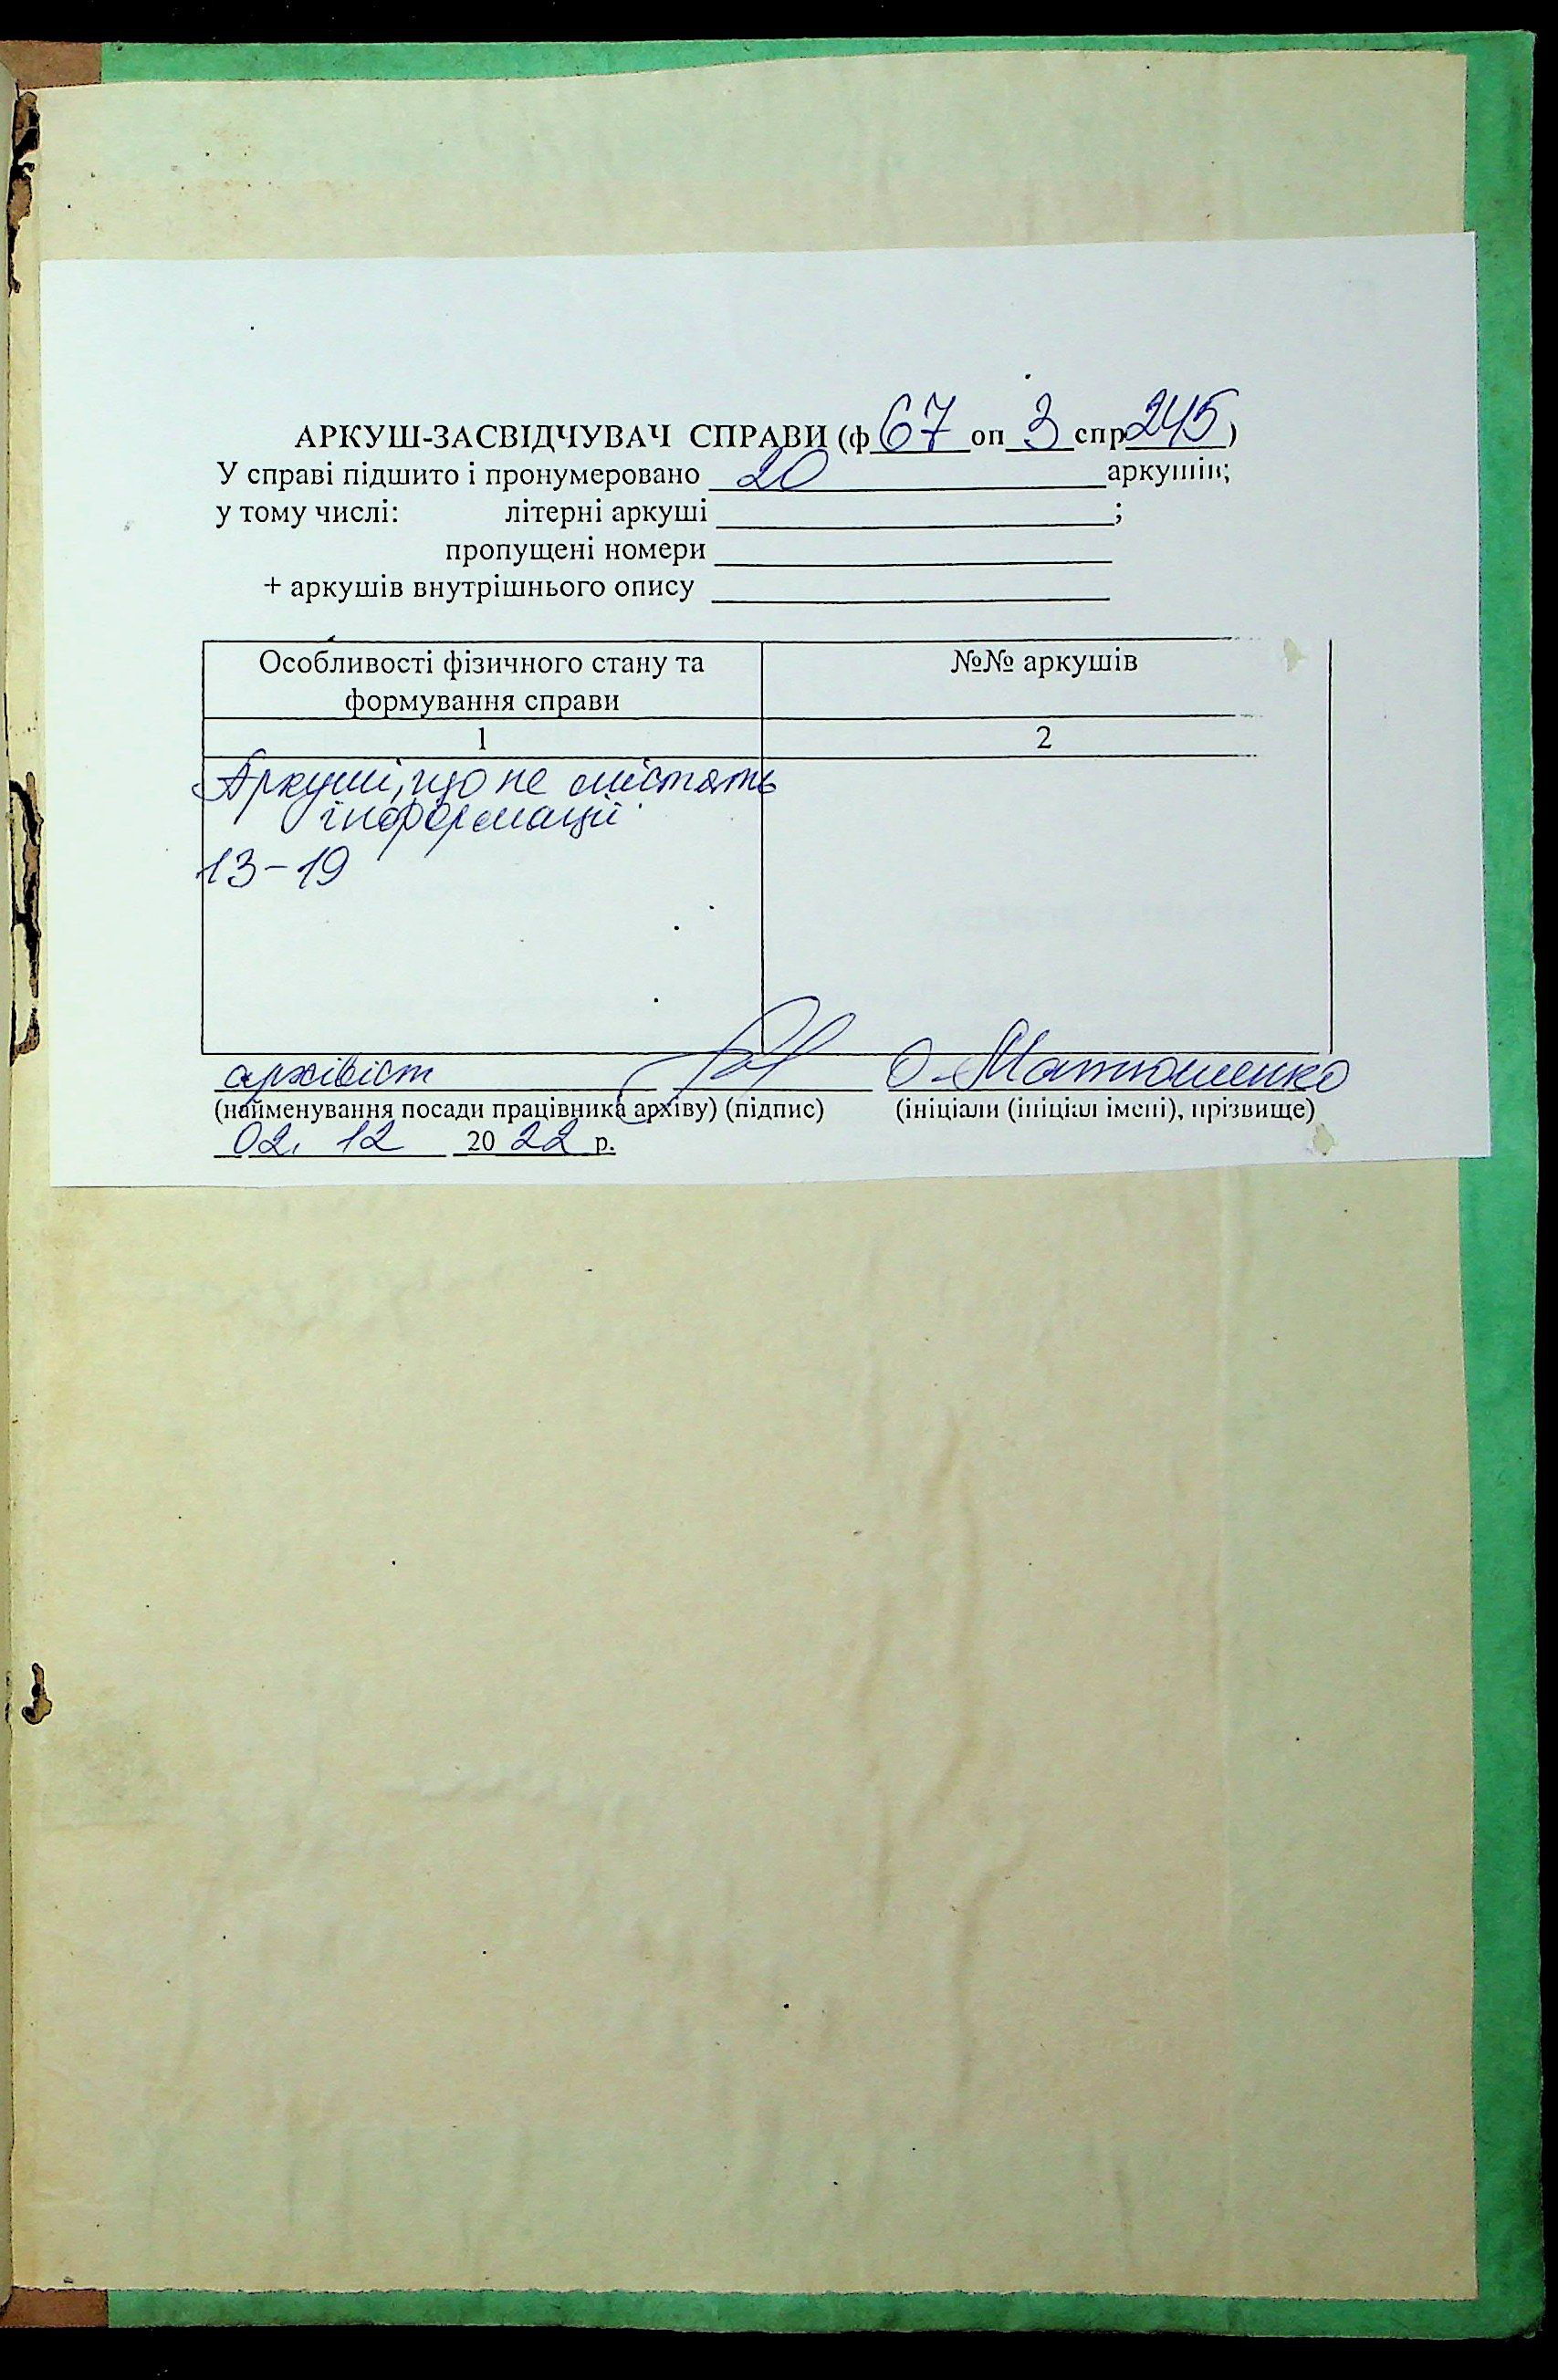 АРКУШ-ЗАСВІДЧУВАЧ СПРАВИ (ф 67 оп 3 спр 245)
У справі підшито і пронумеровано 20 аркушів;
у тому числі: літерні аркуші ;
пропущені номери
+ аркушів внутрішнього опису
Особливості фізичного стану та формування справи
№№ аркушів
1
2
Аркуші, що не містять
інформації
13-19
архівіст О. Матюшенко
(найменування посади працівника архіву) (підпис) (ініціали (ініціал імені), прізвище)
02. 12 2022 р.